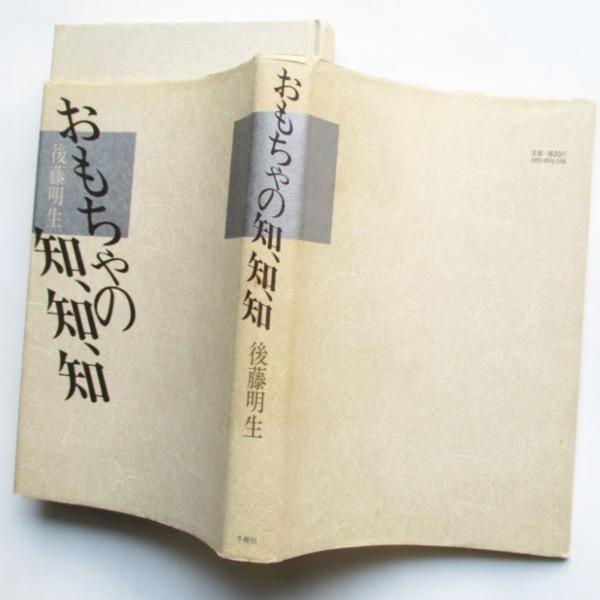 おもちゃの
知、知、知
後藤明生
おもちゃの知、知、知
後藤明生
冬樹社